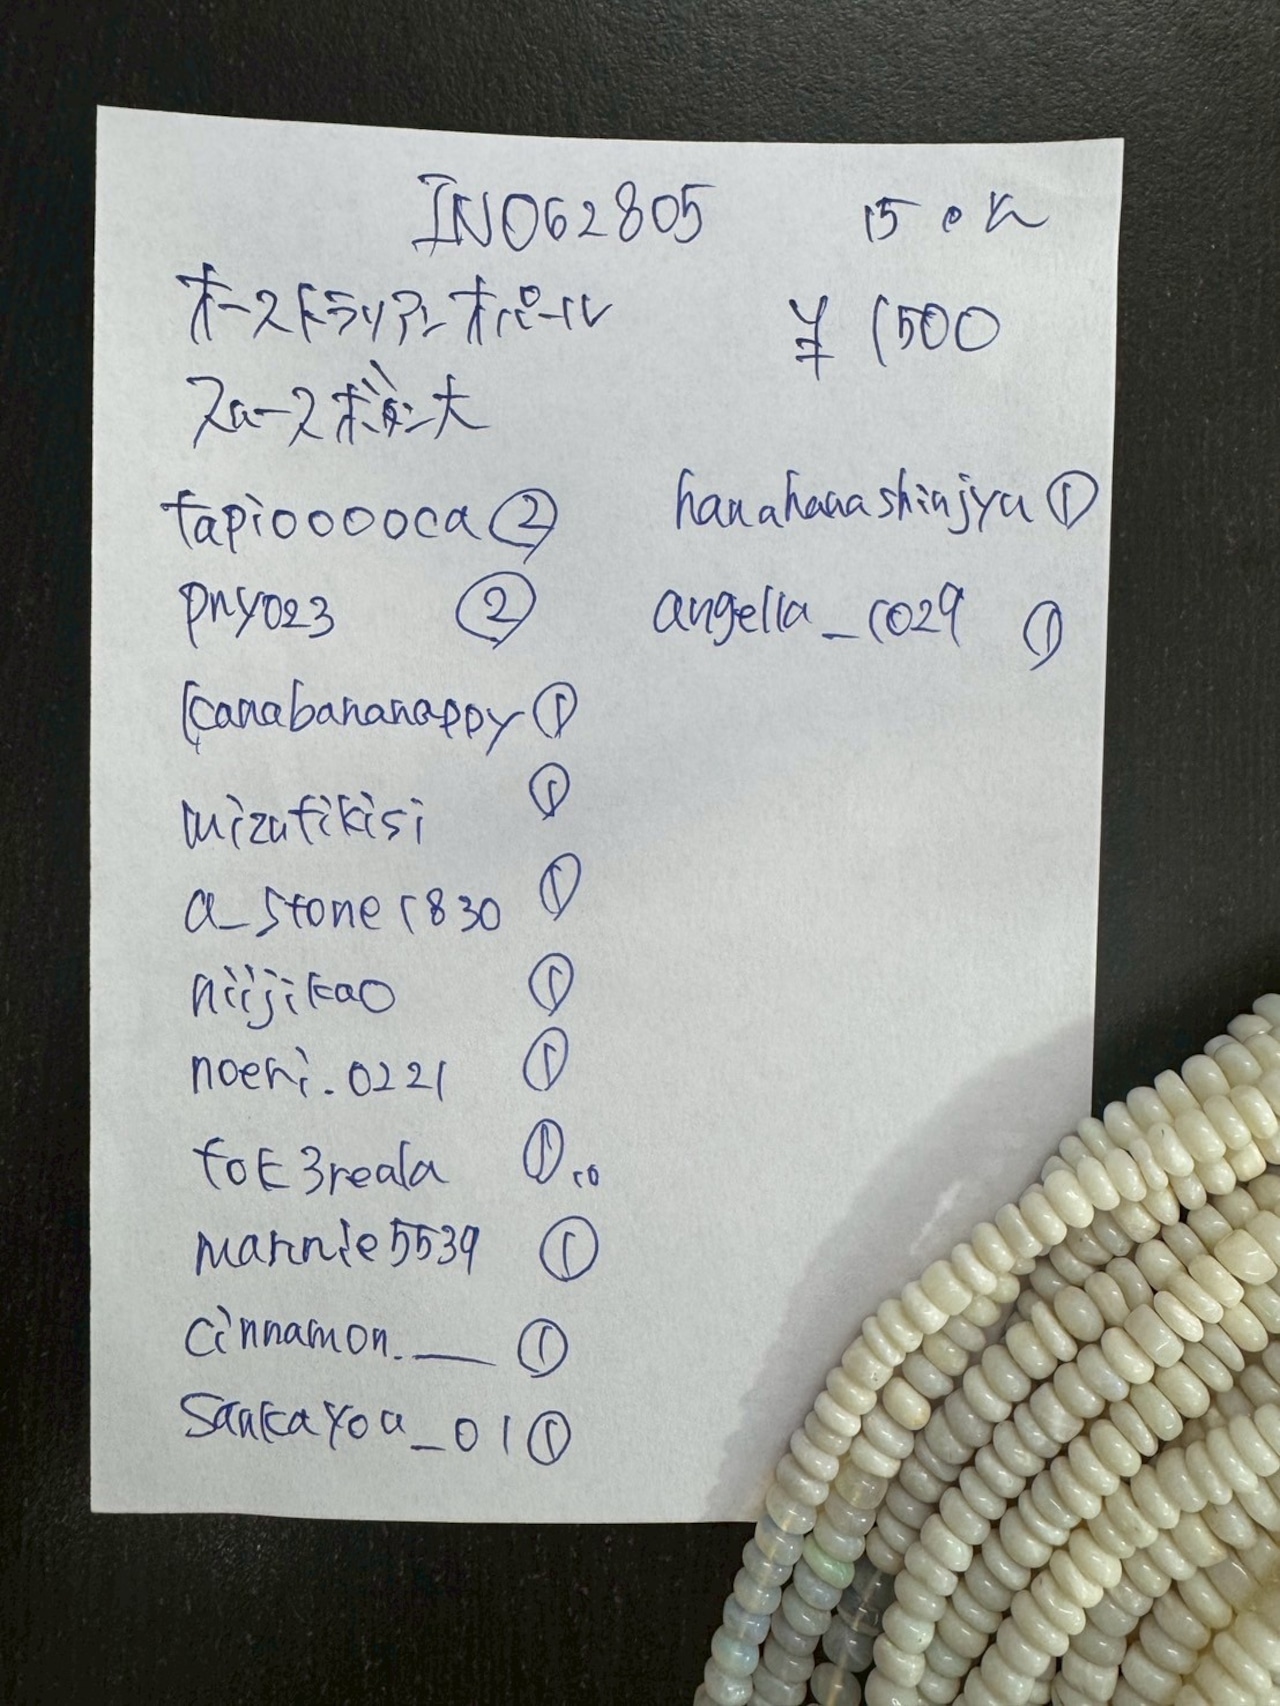 IN062805 15 ok
オーストラリアンオパール ¥1500
スムースボタン大
tapiooooca ②
pny023 ②
kanabananappy ①
mizutikisi ①
a_stone1830 ①
niijikao ①
noeri.0221 ①
tok3reala ①.10
mannie5539 ①
cinnamon.__ ①
sankayou_01 ①
hanahanashinjyu ①
angella_1029 ①